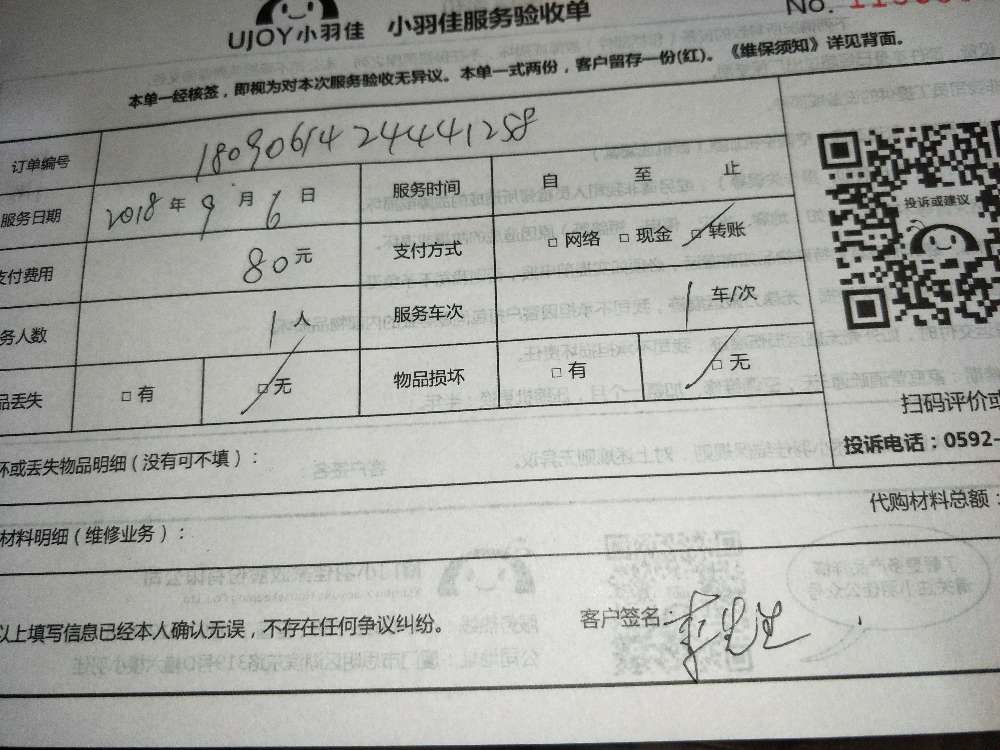 UJOY小羽佳 小羽佳服务验收单 No.
本单一经核签，即视为对本次服务验收无异议。本单一式两份，客户留存一份(红)。《维保须知》详见背面。
订单编号 1809061424441258
服务日期 2018年9月6日 服务时间 自 至 止
支付费用 80元 支付方式 □网络 □现金 □转账
务人数 1人 服务车次 1车/次
品丢失 □有 □无 物品损坏 □有 □无
投诉或建议
扫码评价或
投诉电话：0592-
坏或丢失物品明细（没有可不填）：
代购材料总额：
材料明细（维修业务）：
以上填写信息已经本人确认无误，不存在任何争议纠纷。
客户签名：